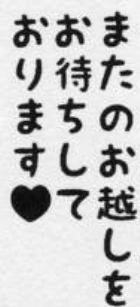 またのお越しを
お待ちして
おります♥